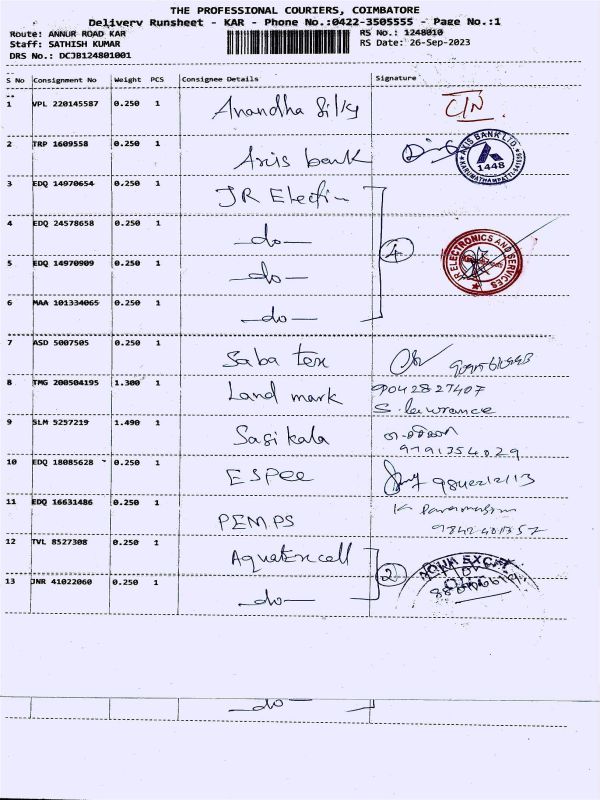 THE PROFESSIONAL COURIERS, COIMBATORE
Delivery Runsheet - KAR - Phone No.:0422-3505555 - Page No.:1
Route: ANNUR ROAD KAR RS No.: 1248010
Staff: SATHISH KUMAR RS Date: 26-Sep-2023
DRS No.: DCJB124801001
S No Consignment No Weight PCS Consignee Details Signature
1 VPL 220145587 0.250 1 Anandha Silks C/N
2 TRP 1609558 0.250 1 Axis bank AXIS BANK LTD 1448
3 EDQ 14970654 0.250 1 JR Electrin
4 EDQ 24578658 0.250 1 -do- 4 JR ELECTRONICS AND SERVICES
5 EDQ 14970909 0.250 1 -do-
6 MAA 101334065 0.250 1 -do-
7 ASD 5007505 0.250 1 Saba tex
8 TMG 200504195 1.300 1 Land mark 9042827407
S. lawrance
9 SLM 5257219 1.490 1 Sasikala
9791354029
10 EDQ 18085628 0.250 1 ESPEE
11 EDQ 16631486 0.250 1 PEMPS
12 TVL 8527308 0.250 1 Aquatexcell 2
13 JNR 41022060 0.250 1 -do-
-do-